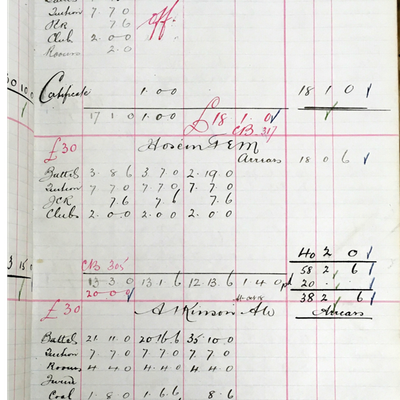 Tuition 7 7 0
JCR 7.6
Club 2.0.0
Rooms 2.0
off.
30 10 0
Certificate 1.0.0 18 1 0
17 1 0 1.0.0 £18 1.0
CB 317
£30 Hosein F E M
Arrears 18 0 6
Battels 3.8 6 3 7 0 2.19.0
Tuition 7 7 0 7 7 0 7.7.0
JCR 7.6 7.6 7.6
Clubs 2.0.0 2.0.0 2.0.0
40 2 0
CB 305 58 2 6
3 15 0 13 3 0 13 1 6 12 13.6 1 4 0 pd 20
20 0 0 38 2 6
£30 Atkinson Arrears
Battels 21 11 0 20 16 6 35 10 0
Tuition 7 7 0 7 7 0 7 7 0
Rooms 4 4 0 4 4 0 4 4 0
Coal 1 8 0 1 6 6 8.6